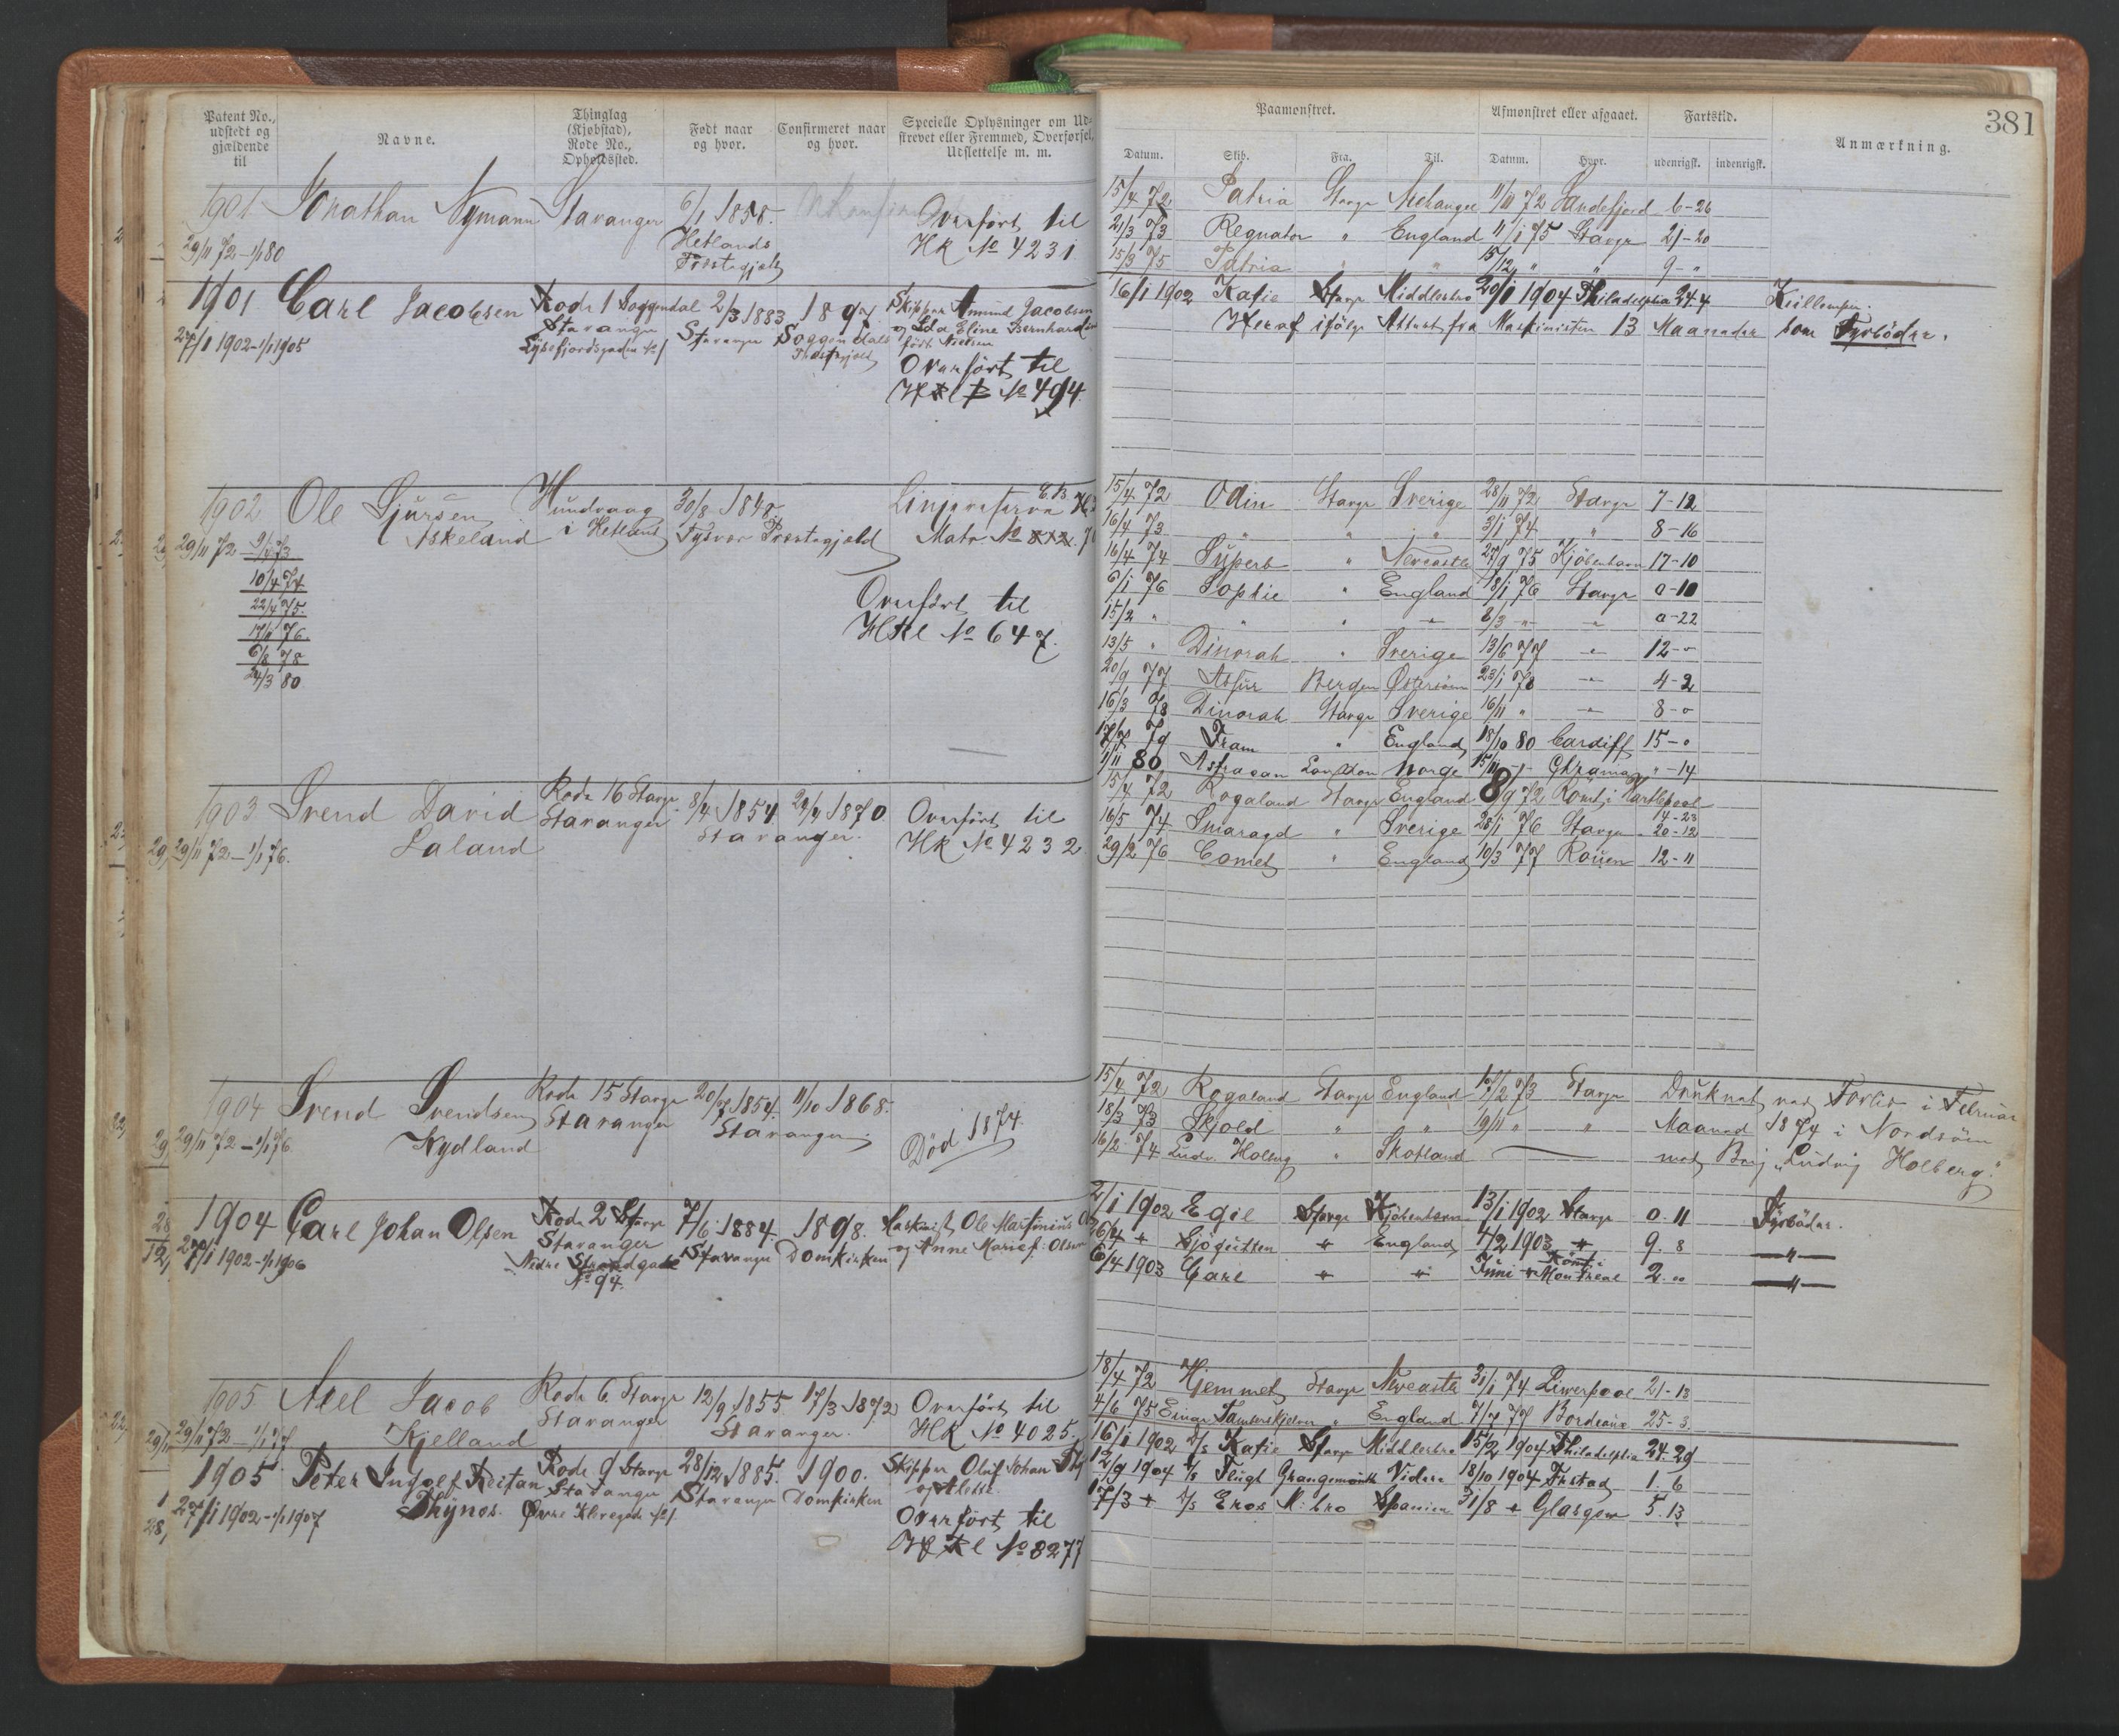 381
Patent No., udstedt og gjældende til
Navne.
Thinglag (Kjøbstad), Rode No., Opholdssted.
Født naar og hvor.
Confirmeret naar og hvor.
Specielle Oplysninger om Ud-
skrevet eller Fremmed, Overførsel,
Udslettelse m. m.
Paamønstret.
Afmønstret eller afgaaet.
Fartstid.
Anmærkning.
Datum. Skib. Fra. Til. Datum. Hvor. udenrigsk. indenrigsk.
1901 Jonathan Nymann Stavanger 6/1 1858. Overført til
29/11 72 - 1/1 80 Hetlands HK No 4231
Præstegjeld
15/4 72 Patria Stavgr 11/11 72 Sandefjord 6-26
21/3 73 Regnator " England 11/1 75 Stavgr 21-20
15/9 75 Patria " " 15/12 " " 9-"
1901 Carl Jacobsen Rode 1 Soggendal 2/3 1883 1897 Skipper Amund Jacobsen
Stavanger Stavanger Soggendals og Ida Eline Bernhardine
27/1 1902-1/1 1905 Præstegjeld født Nielsen
Overført til
No 494
16/1 1902 Katie Stavgr Middlesbro 20/1 1904 Philadelphia 24-4
Heraf ifølge Attest fra Maskinisten 13 Maaneder som Fyrbøder.
1902 Ole Sjursen Hundvaag 30/8 1848. Linjereserve
29/11 72 - 9/4 73 Askeland i Hetland Tysvær Præstegjeld Matr No
10/4 74
22/4 75
17/11 76
6/8 78
24/3 80
Overført til
HKl No 647.
15/4 72 Odin Stavgr Sverige 28/11 72 Stavgr 7-12
16/4 73 " " " 3/1 74 " 8-16
16/4 74 Superb " Newcastle 27/9 75 Kjøbenhavn 17-10
6/1 76 Sophie " England 18/1 76 Stavgr 0-10
15/2 " " " " 6/3 " " 0-22
13/5 " Dinorah " Sverige 13/6 77 " 12-"
20/9 77 Assur Bergen Østersøen 23/1 78 " 4-2
16/3 78 Dinorah Stavgr Sverige 16/11 " " 8-0
17/7 79 Fram " England 18/10 80 Cardiff 15-"
1/11 80 London Norge 15/11 Chrania "-14
1903 Svend David Rode 16 Stavgr 8/4 1854 24/4 1870 Overført til
29/11 72 - 1/1 76. Laland Stavanger Stavanger. HK No 4232
15/4 72 Rogaland Stavgr England 8/9 72 Rømt i Hartlepool
14-23
16/5 74 Smaragd " Sverige 28/1 76 Stavgr 20-12
29/2 76 Comet " England 10/3 77 Rouen 12-11
1904 Svend Svendsen Rode 15 Stavgr 20/7 1854 11/10 1868.
29/11 72 - 1/1 76 Kydland Stavanger Stavanger. Død 1874.
15/4 72 Rogaland Stavgr England 17/2 73 Stavgr Druknet ved Forlis i Februar
18/3 73 Skjold " " 19/11 " " Maaned 1874 i Nordsöen
16/2 74 Ludv. Holberg " Skotland — med Brig "Ludvig Holberg".
1904 Carl Johan Olsen Rode 2 Stavgr 7/6 1884 1898. Maskinist Ole Martinius
27/1 1902-1/1 1906 Stavanger Stavanger Domkirken og Anne Marie f: Olsen
Nedre Strandgade
No 94.
2/1 1902 Egil Stavgr Kjöbenhavn 13/1 1902 Stavgr 0. 11 Fyrböder.
26/4 " Sjögutten " England 4/2 1903 " 9. 8 —"—
6/4 1903 Carl " " Juni " Rømt i Montreal 2. 00 —"—
1905 Axel Jacob Rode 6 Stavgr 12/9 1855 17/3 1872 Overført til
29/11 72 - 1/1 77 Kjelland Stavanger Stavanger. HK No 4025.
18/4 72 Hjemmet Stavgr Newcastle 31/1 74 Liverpool 21-13
4/6 75 Einar Tamberskjelver " England 7/7 77 Bordeaux 25-3
1905 Peter Ingolf Reitan Rode 9 Stavgr 28/12 1885. 1900. Skipper Oluf Johan
27/1 1902-1/1 1907 Thynes. Stavanger Stavanger Domkirken og Aletta
Øvre Klevegade
Overført til
No 8277
16/1 1902 D/s Katie Stavgr Middlesbro 15/2 1904 Philadelphia 24. 29
12/9 1904 D/s Flugt Grangemouth Videre 18/10 1904 1. 6
17/3 " D/s Eros M:bro Spanien 31/8 " Glasgow 5. 13